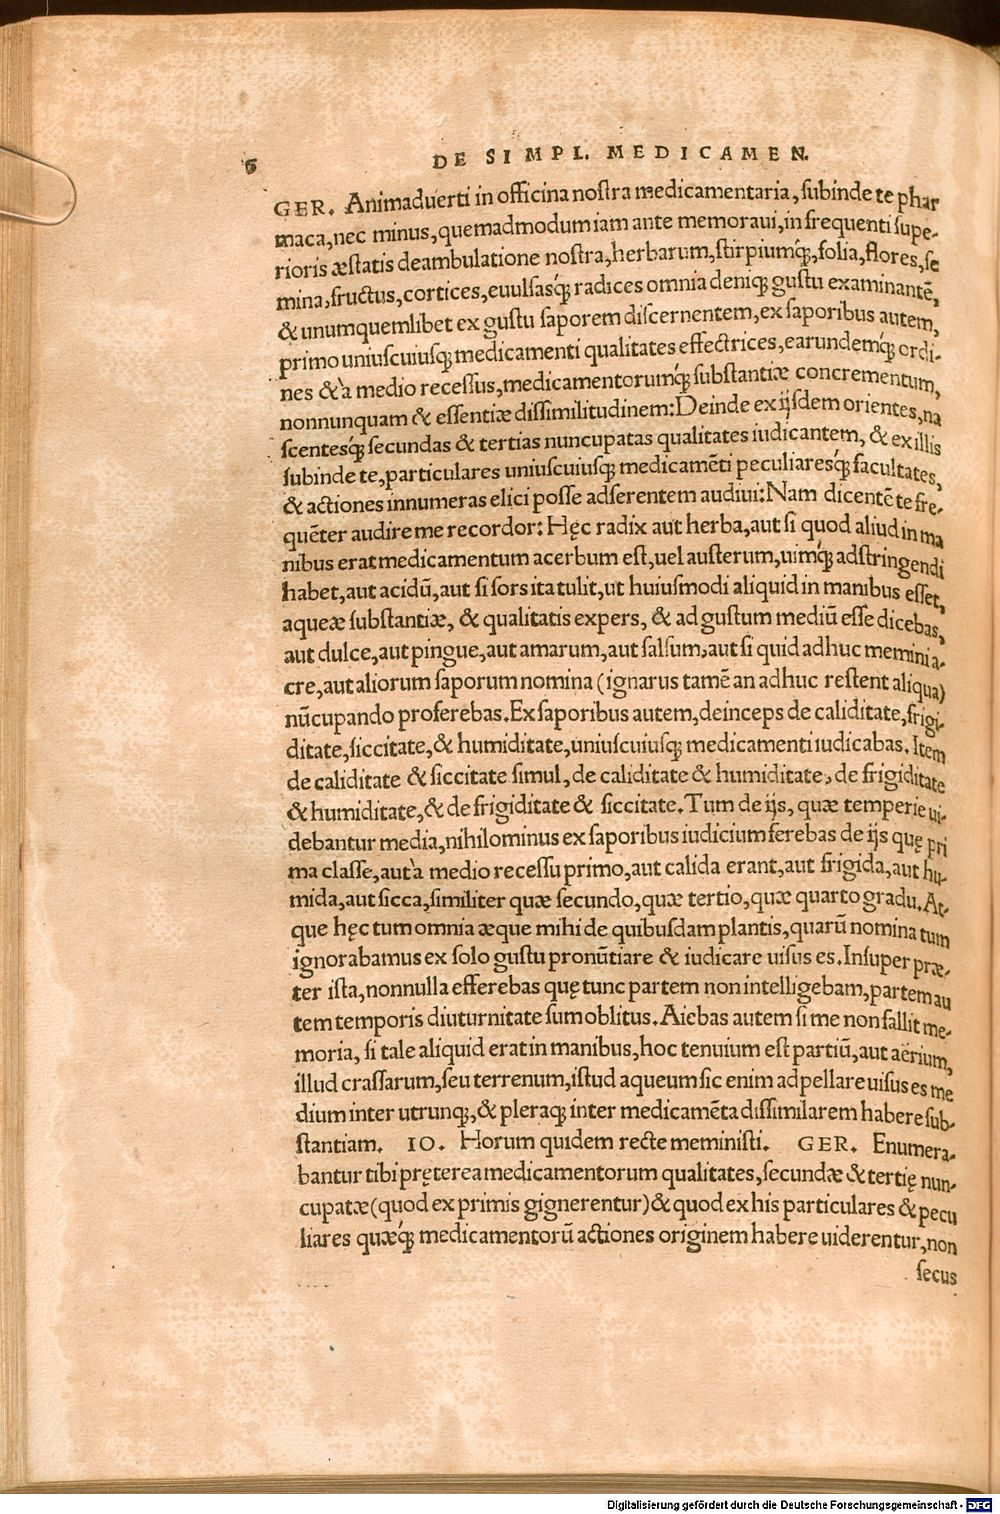 6 DE SIMPL. MEDICAMEN.
GER. Animaduerti in officina nostra medicamentaria, subinde te phar
maca, nec minus, quemadmodum iam ante memoraui, in frequenti supe-
rioris æstatis deambulatione nostra, herbarum, stirpiumq́;, folia, flores, se
mina, fructus, cortices, euulsasq́; radices omnia deniq; gustu examinantē,
& unumquemlibet ex gustu saporem discernentem, ex saporibus autem,
primo uniuscuiusq; medicamenti qualitates effectrices, earundemq́; ordi-
nes & à medio recessus, medicamentorumq́; substantiæ concrementum,
nonnunquam & essentiæ dissimilitudinem: Deinde ex ijsdem orientes, na
scentesq́; secundas & tertias nuncupatas qualitates iudicantem, & ex illis
subinde te, particulares uniuscuiusq; medicamēti peculiaresq́; facultates,
& actiones innumeras elici posse adserentem audiui: Nam dicentē te fre-
quēter audire me recordor: Hęc radix aut herba, aut si quod aliud in ma
nibus erat medicamentum acerbum est, uel austerum, uimq́; adstringendi
habet, aut acidū, aut si sors ita tulit, ut huiusmodi aliquid in manibus esset,
aqueæ substantiæ, & qualitatis expers, & ad gustum mediū esse dicebas,
aut dulce, aut pingue, aut amarum, aut salsum, aut si quid adhuc memini a-
cre, aut aliorum saporum nomina (ignarus tamē an adhuc restent aliqua)
nūcupando proferebas. Ex saporibus autem, deinceps de caliditate, frigi-
ditate, siccitate, & humiditate, uniuscuiusq; medicamenti iudicabas. Item
de caliditate & siccitate simul, de caliditate & humiditate, de frigiditate
& humiditate, & de frigiditate & siccitate. Tum de ijs, quæ temperie ui-
debantur media, nihilominus ex saporibus iudicium ferebas de ijs quę pri
ma classe, aut à medio recessu primo, aut calida erant, aut frigida, aut hu-
mida, aut sicca, similiter quæ secundo, quæ tertio, quæ quarto gradu. At-
que hęc tum omnia æque mihi de quibusdam plantis, quarū nomina tum
ignorabamus ex solo gustu pronūtiare & iudicare uisus es. Insuper præ-
ter ista, nonnulla efferebas quę tunc partem non intelligebam, partem au
tem temporis diuturnitate sum oblitus. Aiebas autem si me non fallit me-
moria, si tale aliquid erat in manibus, hoc tenuium est partiū, aut aërium,
illud crassarum, seu terrenum, istud aqueum sic enim adpellare uisus es me
dium inter utrunq;, & pleraq; inter medicamēta dissimilarem habere sub-
stantiam. IO. Horum quidem recte meministi. GER. Enumera-
bantur tibi pręterea medicamentorum qualitates, secundæ & tertię nun-
cupatæ (quod ex primis gignerentur) & quod ex his particulares & pecu
liares quæq́; medicamentorū actiones originem habere uiderentur, non
secus
Digitalisierung gefördert durch die Deutsche Forschungsgemeinschaft - DFG